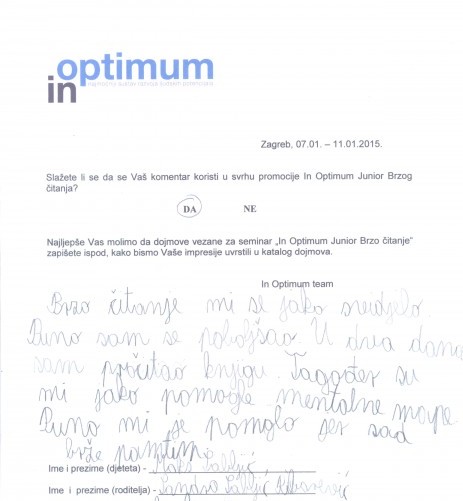 in optimum
Zagreb, 07.01. – 11.01.2015.
Slažete li se da se Vaš komentar koristi u svrhu promocije In Optimum Junior Brzog
čitanja?
DA NE
Najljepše Vas molimo da dojmove vezane za seminar „In Optimum Junior Brzo čitanje“
zapišete ispod, kako bismo Vaše impresije uvrstili u katalog dojmova.
In Optimum team
Brzo čitanje mi se jako sviđjelo.
Puno sam se poboljšao. U dva dana
sam pročitao knjigu. Tagođer su
mi jako pomogle mentalne mape.
Puno mi je pomglo jer sad
brže pamtim.
Ime i prezime (djeteta) -
Ime i prezime (roditelja) -